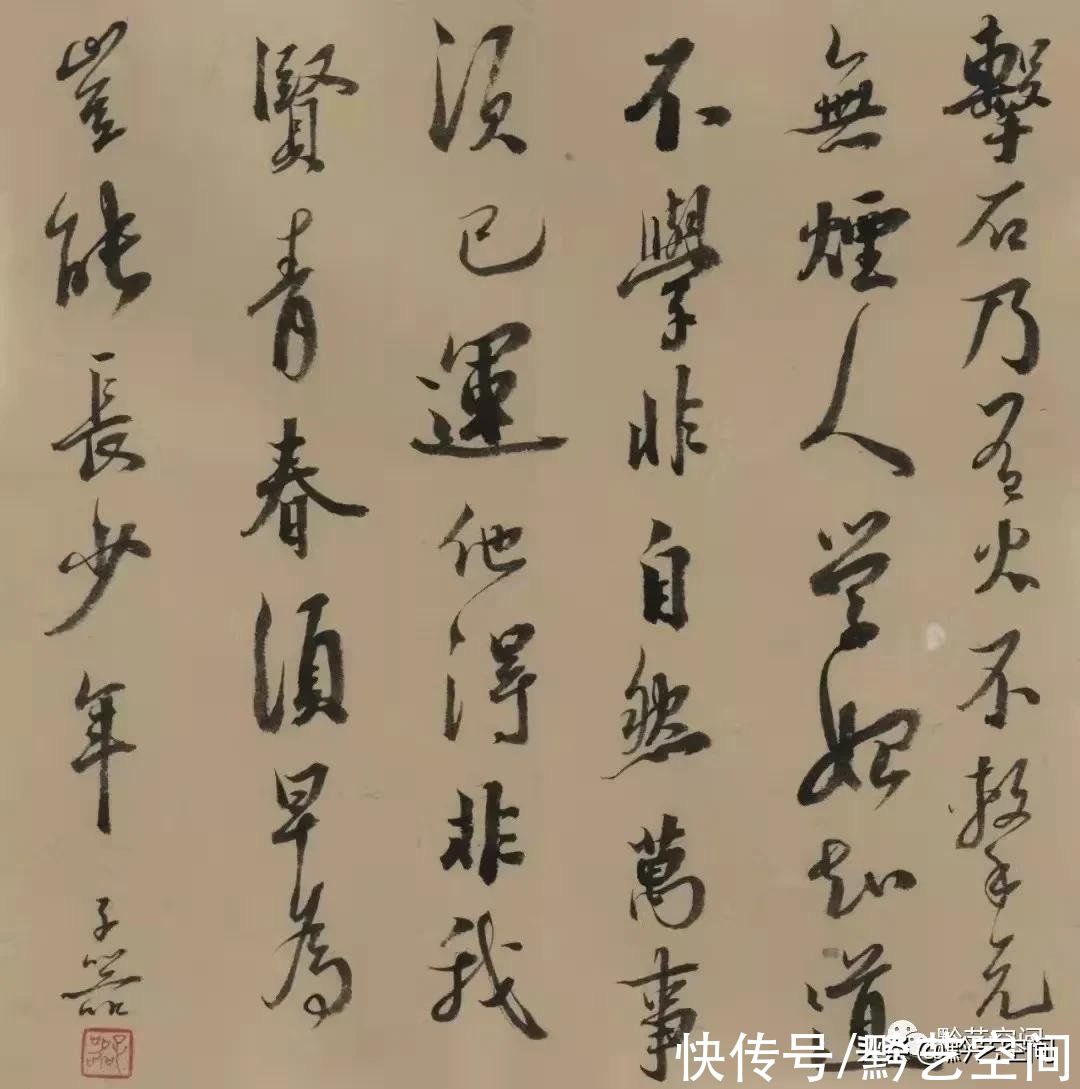 擊石乃有火不擊元
無煙人学始知道
不學非自然萬事
須已運他得非我
賢青春須早為
豈能長少年
子
黔艺空间
快传号/黔艺空间